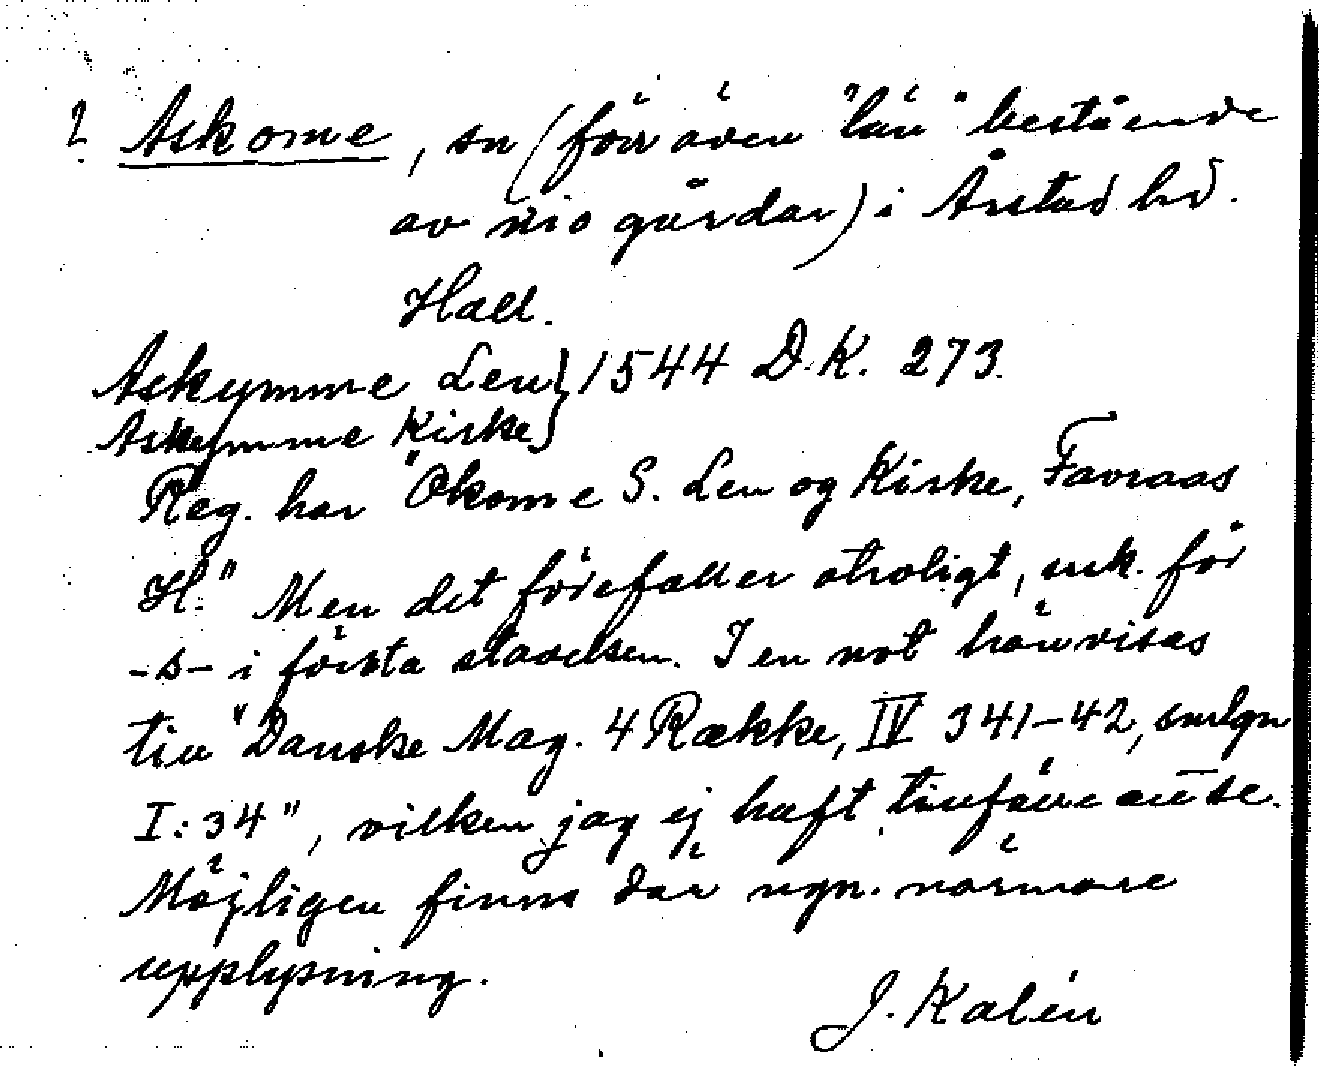 ? Askome, sn (förr även "län" bestående
av nio gårdar) i Årstad hd.
Hall.
Askymme Len } 1544 D.K. 273.
Askymme Kirke }
Reg. har "Okome S. Len og Kirke, Favraas
H." Men det förefaller otroligt, urk. för
-s- i första stavelsen. I en not hänvisas
till "Danske Mag. 4 Række, IV 341-42, smlgn
I:34", vilken jag ej haft tillfälle att se.
Möjligen finns där ngn. närmare
upplysning.
J. Kalén